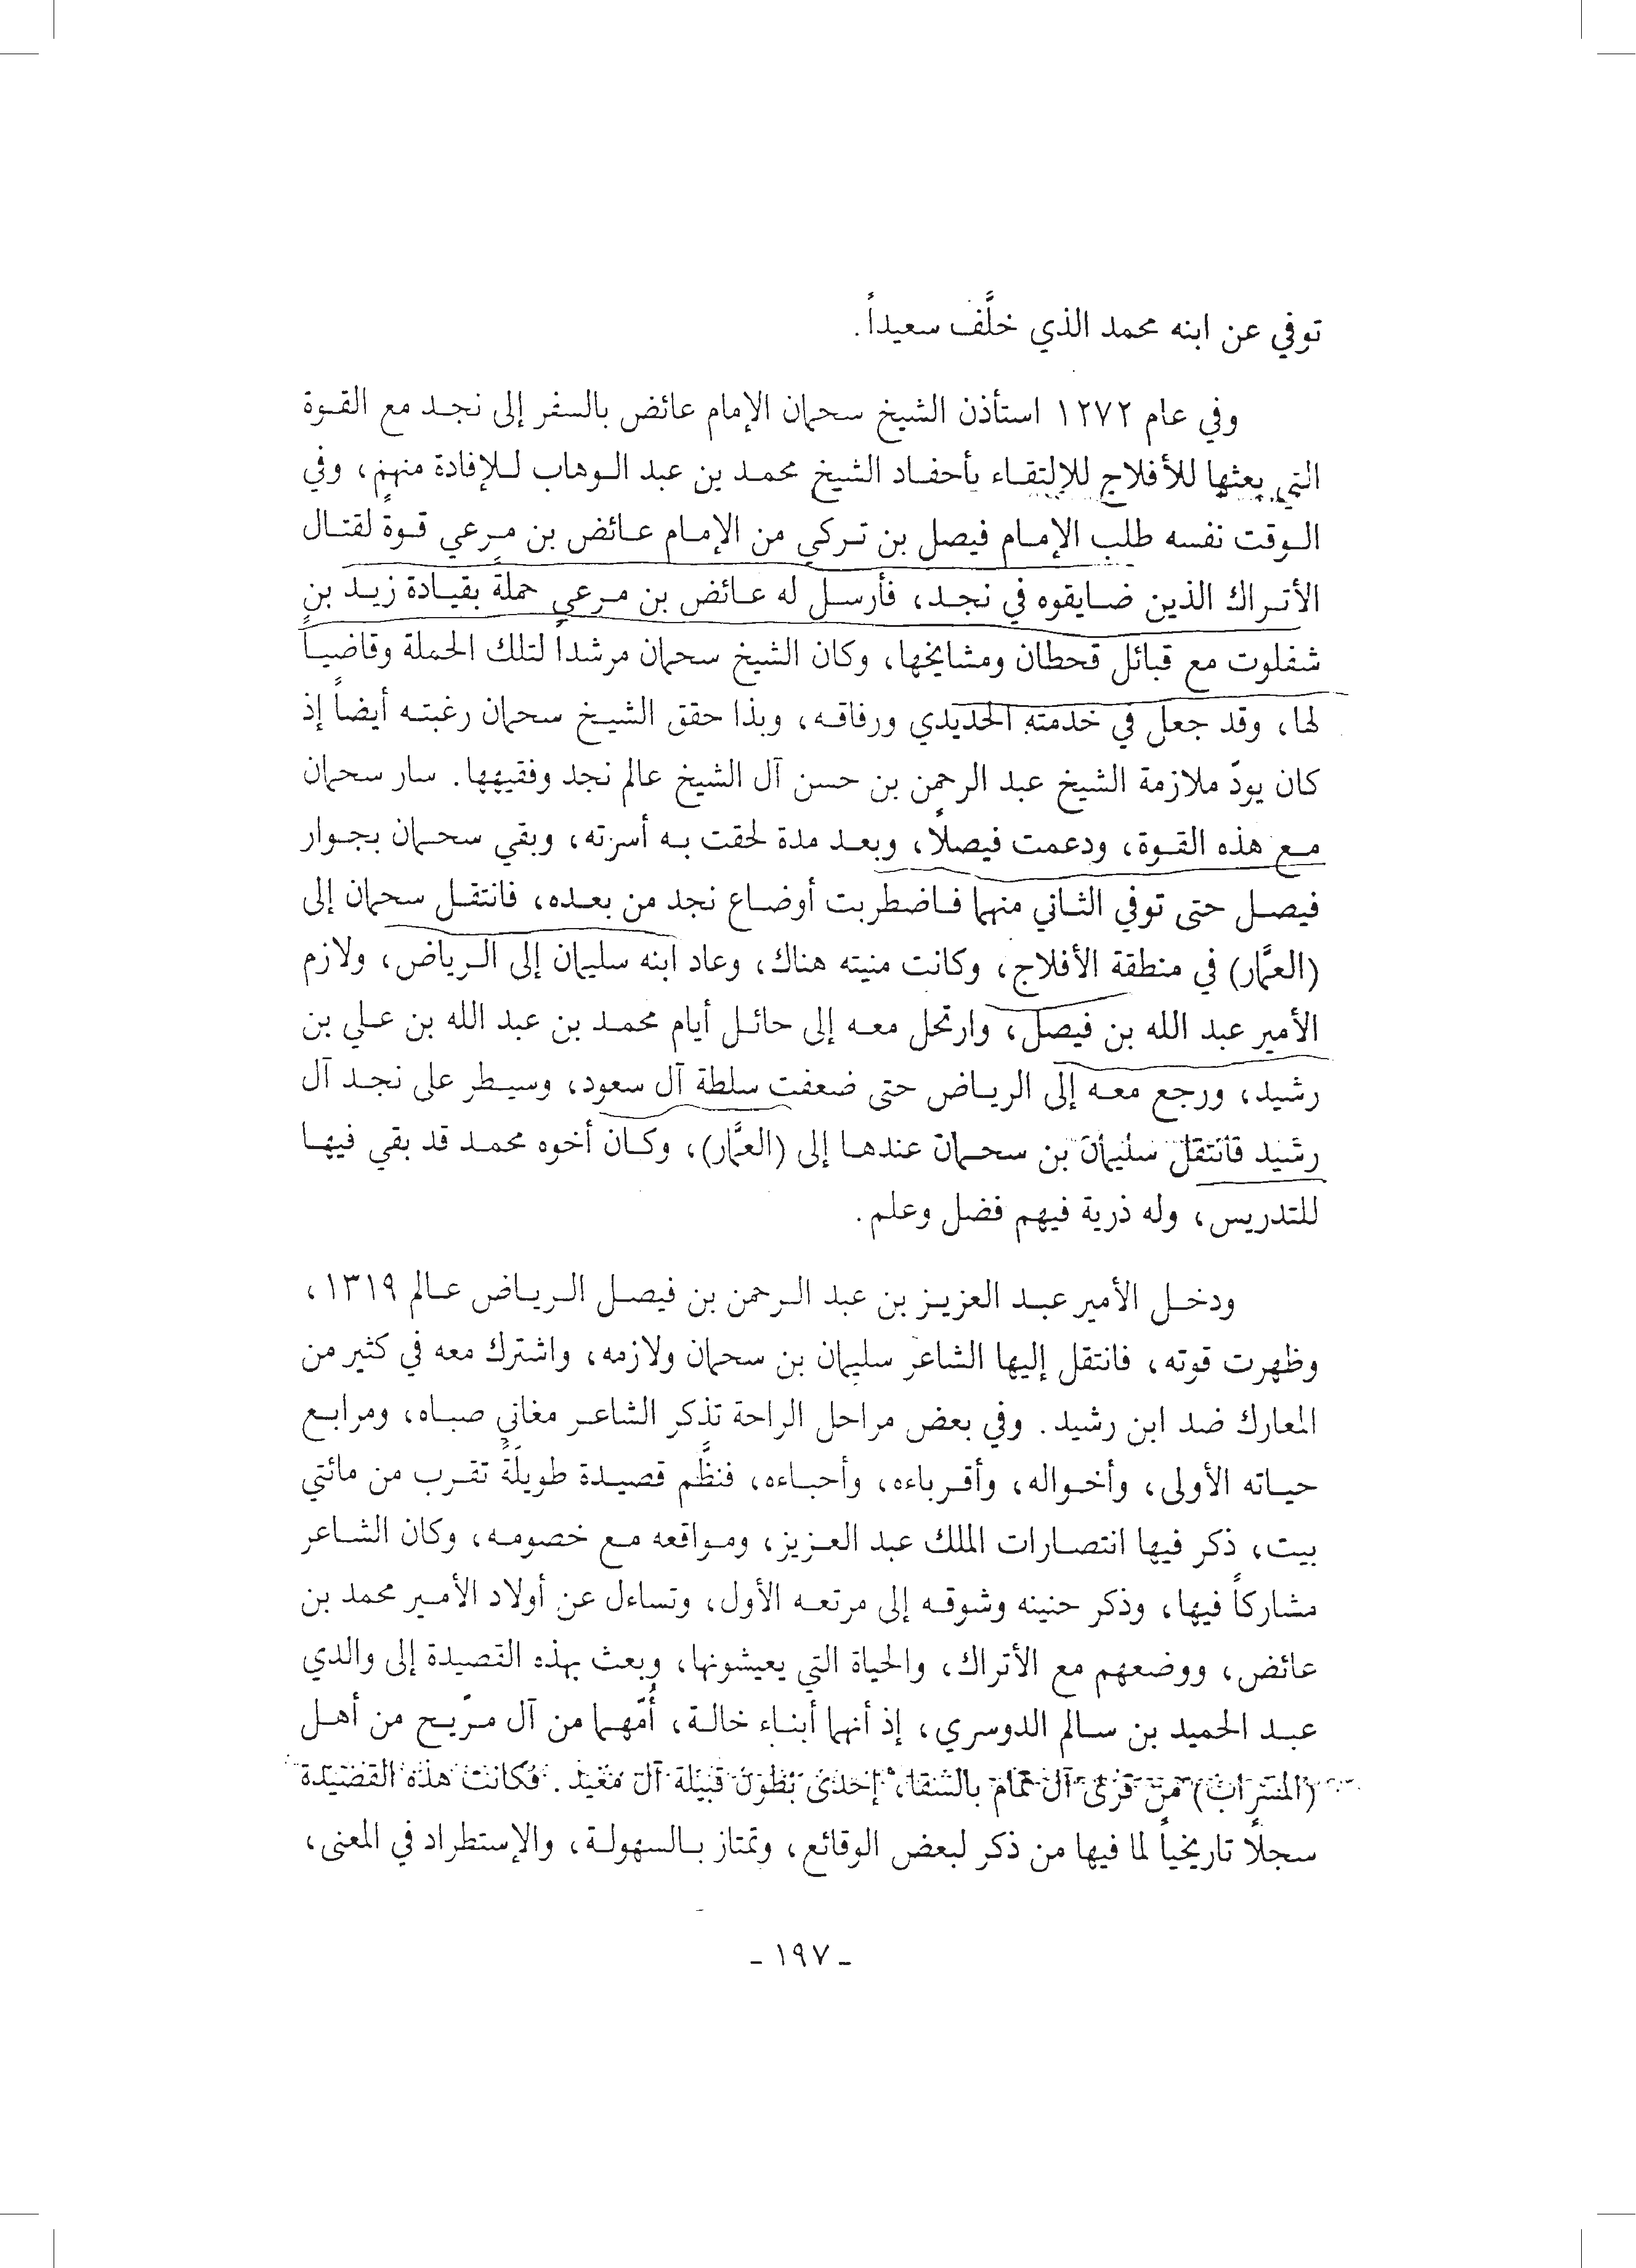 توفي عن ابنه محمد الذي خلَّف سعيداً.
وفي عام ١٢٧٢ استأذن الشيخ سحمان الإمام عائض بالسفر إلى نجد مع القوة
التي بعثها للأفلاج للإلتقاء بأحفاد الشيخ محمد بن عبد الوهاب للإفادة منهم، وفي
الوقت نفسه طلب الإمام فيصل بن تركي من الإمام عائض بن مرعي قوة لقتال
الأتراك الذين ضايقوه في نجد، فأرسل له عائض بن مرعي حملة بقيادة زيد بن
شفلوت مع قبائل قحطان ومشايخها، وكان الشيخ سحمان مرشداً لتلك الحملة وقاضياً
لها، وقد جعل في خدمته الحديدي ورفاقه، وبذا حقق الشيخ سحمان رغبته أيضاً إذ
كان يودّ ملازمة الشيخ عبد الرحمن بن حسن آل الشيخ عالم نجد وفقيهها. سار سحمان
مع هذه القوة، ودعمت فيصلاً، وبعد مدة لحقت به أسرته، وبقي سحمان بجوار
فيصل حتى توفي الثاني منهما فاضطربت أوضاع نجد من بعده، فانتقل سحمان إلى
(العمَّار) في منطقة الأفلاج، وكانت منيته هناك، وعاد ابنه سليمان إلى الرياض، ولازم
الأمير عبد الله بن فيصل، وارتحل معه إلى حائل أيام محمد بن عبد الله بن علي بن
رشيد، ورجع معه إلى الرياض حتى ضعفت سلطة آل سعود، وسيطر على نجد آل
رشيد فانتقل سليمان بن سحمان عندها إلى (العمَّار)، وكان أخوه محمد قد بقي فيها
للتدريس، وله ذرية فيهم فضل وعلم.
ودخل الأمير عبد العزيز بن عبد الرحمن بن فيصل الرياض عالم ١٣١٩،
وظهرت قوته، فانتقل إليها الشاعر سليمان بن سحمان ولازمه، واشترك معه في كثير من
المعارك ضد ابن رشيد. وفي بعض مراحل الراحة تذكر الشاعر مغاني صباه، ومرابع
حياته الأولى، وأخواله، وأقرباءه، وأحباءه، فنظَّم قصيدة طويلةً تقرب من مائتي
بيت، ذكر فيها انتصارات الملك عبد العزيز، ومواقعه مع خصومه، وكان الشاعر
مشاركاً فيها، وذكر حنينه وشوقه إلى مرتعه الأول، وتساءل عن أولاد الأمير محمد بن
عائض، ووضعهم مع الأتراك، والحياة التي يعيشونها، وبعث بهذه القصيدة إلى والدي
عبد الحميد بن سالم الدوسري، إذ أنهما أبناء خالة، أُمّهما من آل مرّيح من أهل
(المسراب) من قرى آل تمام بالسقا، إحدى بطون قبيلة آل مغيد. فكانت هذه القصيدة
سجلاً تاريخياً لما فيها من ذكر لبعض الوقائع، وتمتاز بالسهولة، والإستطراد في المعنى،
- ١٩٧ -